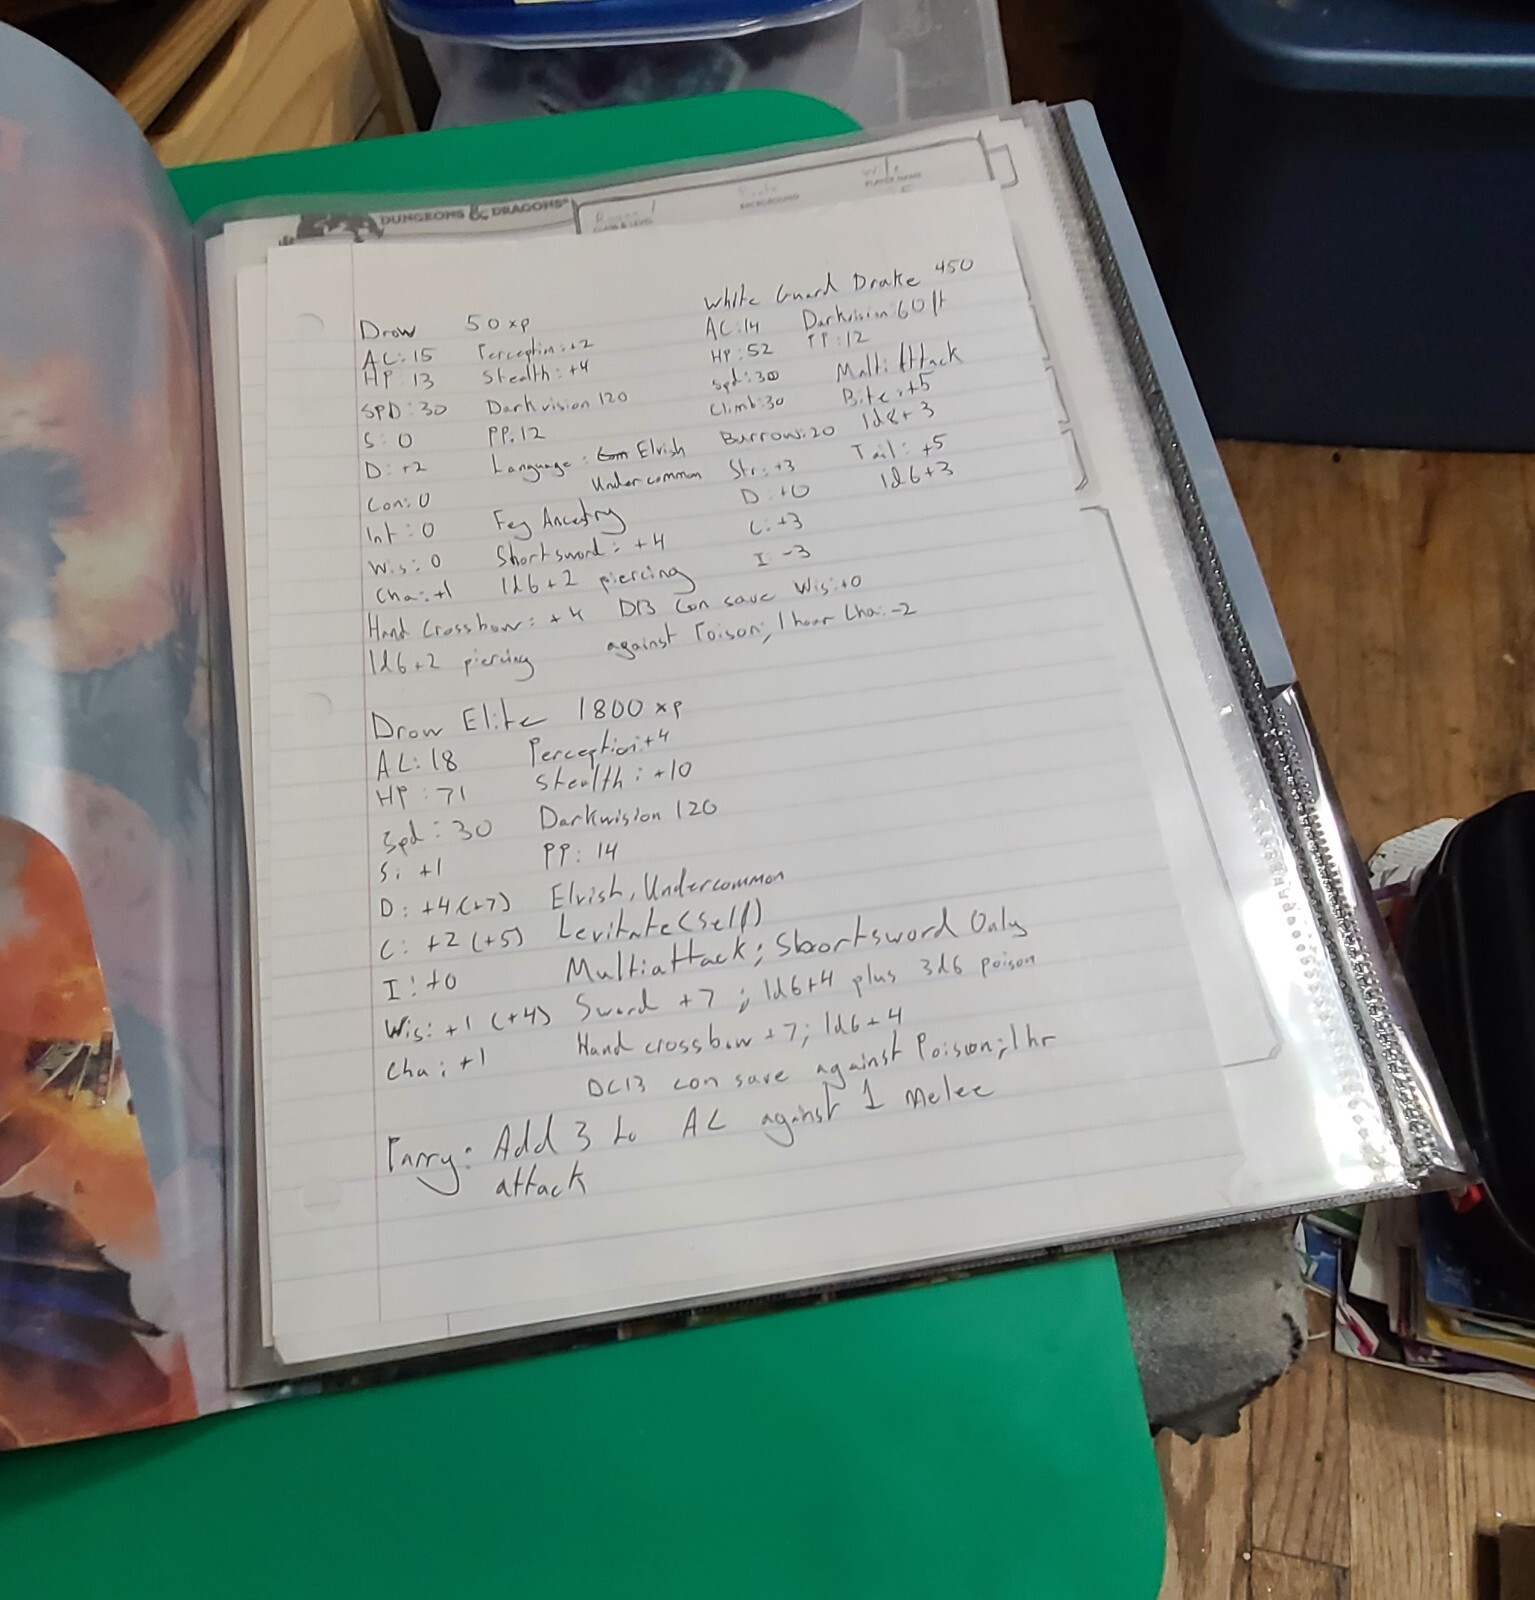 DUNGEONS & DRAGONS®
CLASS & LEVEL
BACKGROUND
PLAYER NAME
Drow 50 xp
AC: 15 Perception: +2
HP: 13 Stealth: +4
SPD: 30 Darkvision 120
S: 0 PP: 12
D: +2 Language: Com Elvish
Con: 0 Undercommon
Int: 0 Fey Ancestry
Wis: 0 Shortsword: +4
Cha: +1 1d6+2 piercing
Hand Crossbow: +4 D13 Con save
1d6+2 piercing against Poison; 1 hour
White Guard Drake 450
AC: 14 Darkvision: 60ft
HP: 52 PP: 12
Spd: 30 Multi Attack
Climb: 30 Bite: +5
Burrow: 20 1d8+3
Str: +3 Tail: +5
D: +0 1d6+3
C: +3
I: -3
Wis: +0
Cha: -2
Drow Elite 1800 xp
AC: 18 Perception: +4
HP: 71 Stealth: +10
Spd: 30 Darkvision 120
S: +1 PP: 14
D: +4 (+7) Elvish, Undercommon
C: +2 (+5) Levitate (self)
I: +0 Multiattack; Shortsword Only
Wis: +1 (+4) Sword +7; 1d6+4 plus 3d6 poison
Cha: +1 Hand crossbow +7; 1d6+4
DC13 con save against Poison; 1hr
Parry: Add 3 to AC against 1 Melee
attack